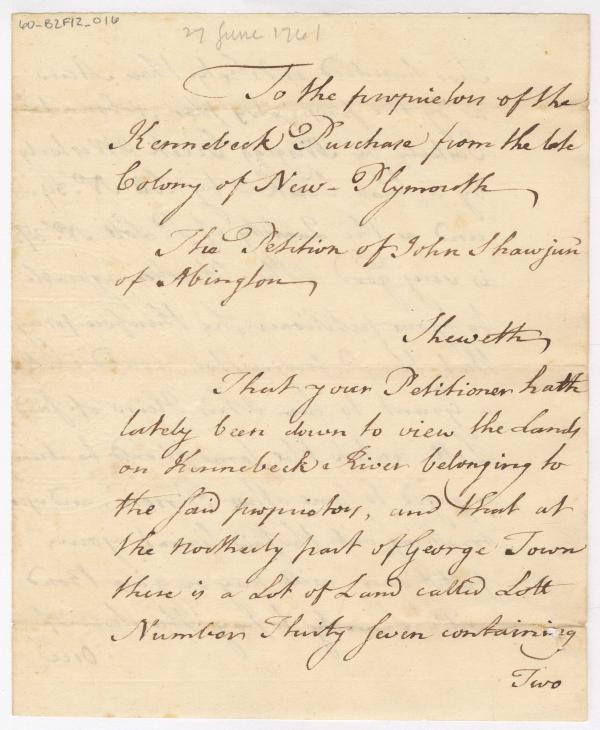 60-B2F12_016
27 June 1761
To the proprietors of the
Kennebeck Purchase from the late
Colony of New-Plymouth,
The Petition of John Shaw junr
of Abington,
Sheweth,
That your Petitioner hath
lately been down to view the Lands
on Kennebeck River belonging to
the said proprietors, and that at
the northerly part of George Town
there is a Lot of Land called Lott
Number Thirty seven containing
Two